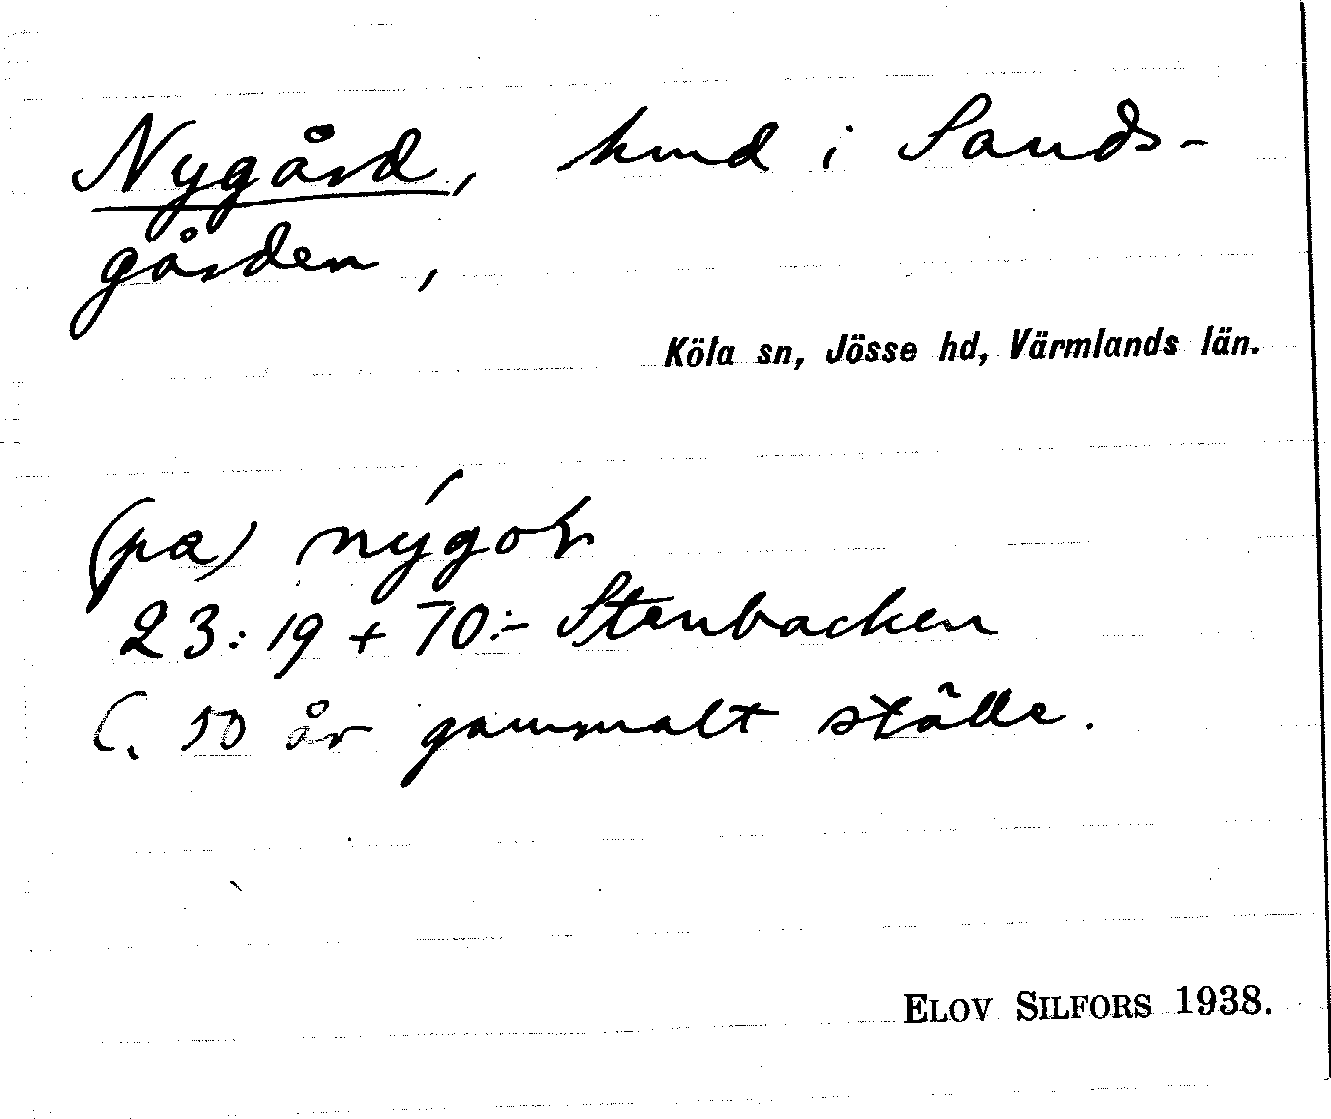 Nygård, hmd i Sands-
gården,
Köla sn, Jösse hd, Värmlands län.
(pa) nýgoḷ
23:19 + 70:- Stenbacken
C. 50 år gammalt ställe.
ELOV SILFORS 1938.